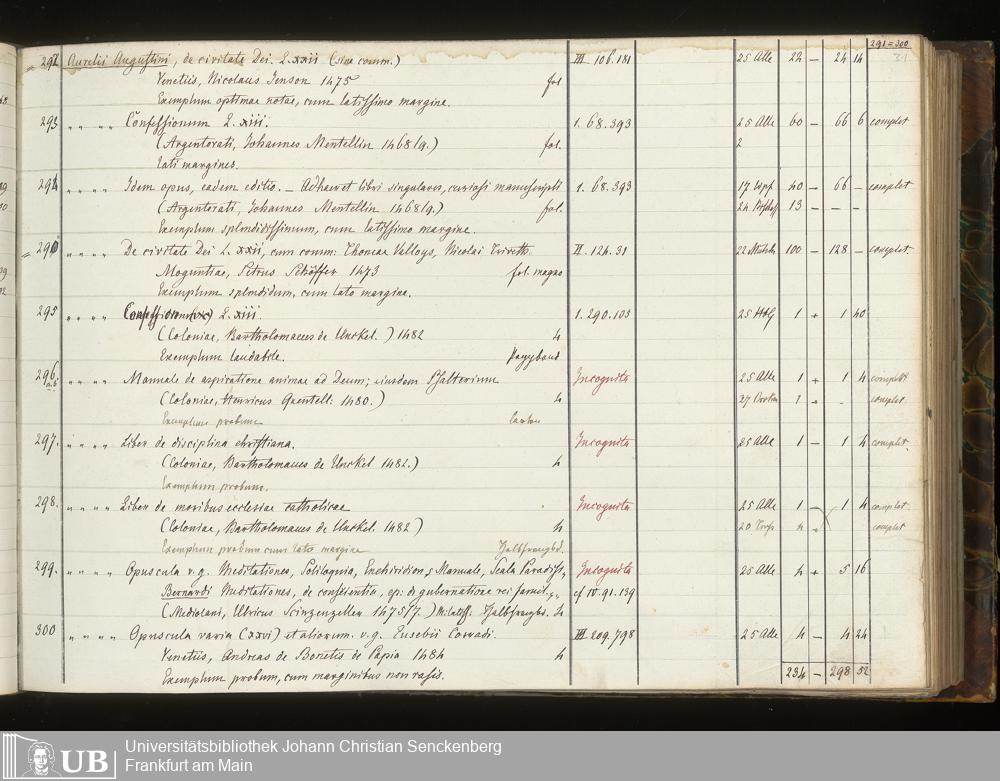 291=300
31
292 Aurelii Augustini, de civitate Dei. L. xxii (sine comm.) III. 106.181 25 Alle 22 — 24 14
Venetiis, Nicolaus Jenson 1475 fol
Exemplum optimae notae, cum latissimo margine.
293 " " " " Confessionum L. xiii. 1. 68.393 25 Alle 60 — 66 6 complet
(Argentorati, Johannes Mentellin 1468/9.) fol. 2
Lati margines.
294 " " " " Idem opus, eadem editio. — Adhaeret libri singulares, curiosi manuscripti 1. 68.393 17 40 — 66 — complet
(Argentorati, Johannes Mentellin 1468/9.) fol. 24 13 — — —
Exemplum splendidissimum, cum latissimo margine.
291 " " " " De civitate Dei L. xxii, cum comm. Thomae Valloys, Nicolai Triveth. II. 124.31 22 100 — 128 — complet.
Moguntiae, Petrus Schöffer 1473 fol. magno
Exemplum splendidum, cum lato margine.
295 " " " " L. xiii. 1. 290.103 25 1 + 1 40
(Coloniae, Bartholomaeus de Unckel.) 1482 4
Exemplum laudabile. Pappband
296. a.b. " " " " Manuale de aspiratione animae ad Deum; eiusdem Psalterium Incognita 25 Alle 1 + 1 4 complet
(Coloniae, Henricus Quentell. 1480.) 4 27 1 + - complet
Exemplum probum
297. " " " " Liber de disciplina christiana. Incognita 25 Alle 1 — 1 4 complet.
(Coloniae, Bartholomaeus de Unckel 1482.) 4
Exemplum probum.
298. " " " " Liber de moribus ecclesiae catholicae Incognita 25 Alle 1 — 1 4 complet.
(Coloniae, Bartholomaeus de Unckel. 1482) 4 20 4 complet
Exemplum probum cum lato margine Halbfranzbd.
299. " " " " Opuscula v. g. Meditationes, Soliloquia, Enchiridion s Manuale, Scala Paradisi, Incognita 25 Alle 4 + 5 16
Bernardi Meditationes, de conscientia, ep: de gubernatione rei famil., cf IV. 91.139
(Mediolani, Ulricus Scinzenzeller 1475/7.) M: latiss. Halbfranzbd. 4
300 " " " " Opuscula varia (xxvi) et aliorum. v. g. Eusebii Conradi. III. 209.798 25 Alle 4 — 4 24
Venetiis, Andreas de Bonetis de Papia 1484 4
Exemplum probum, cum marginibus non rasis.
234 — 298 52
UB Universitätsbibliothek Johann Christian Senckenberg
Frankfurt am Main